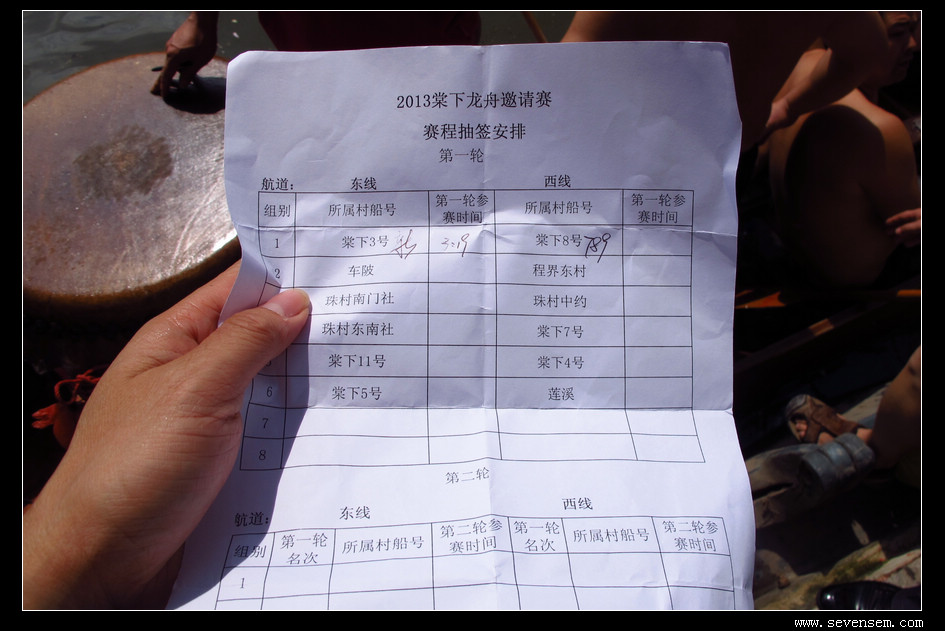 2013棠下龙舟邀请赛
赛程抽签安排
第一轮
航道: 东线 西线
组别 所属村船号 第一轮参赛时间 所属村船号 第一轮参赛时间
1 棠下3号 棠下8号
2 车陂 程界东村
珠村南门社 珠村中约
珠村东南社 棠下7号
棠下11号 棠下4号
6 棠下5号 莲溪
7
8
第二轮
航道: 东线 西线
组别 第一轮名次 所属村船号 第二轮参赛时间 第一轮名次 所属村船号 第二轮参赛时间
1
www.sevensem.com